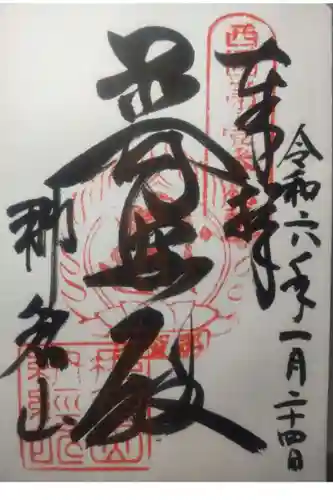 奉拝
令和六年一月二十四日
普照殿
那智山